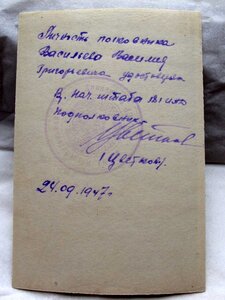 Личность полковника
Васильева Василия
Григорьевича удостоверяю
В. Нач. штаба
Подполковник
/Цветков/
24.09.1947г